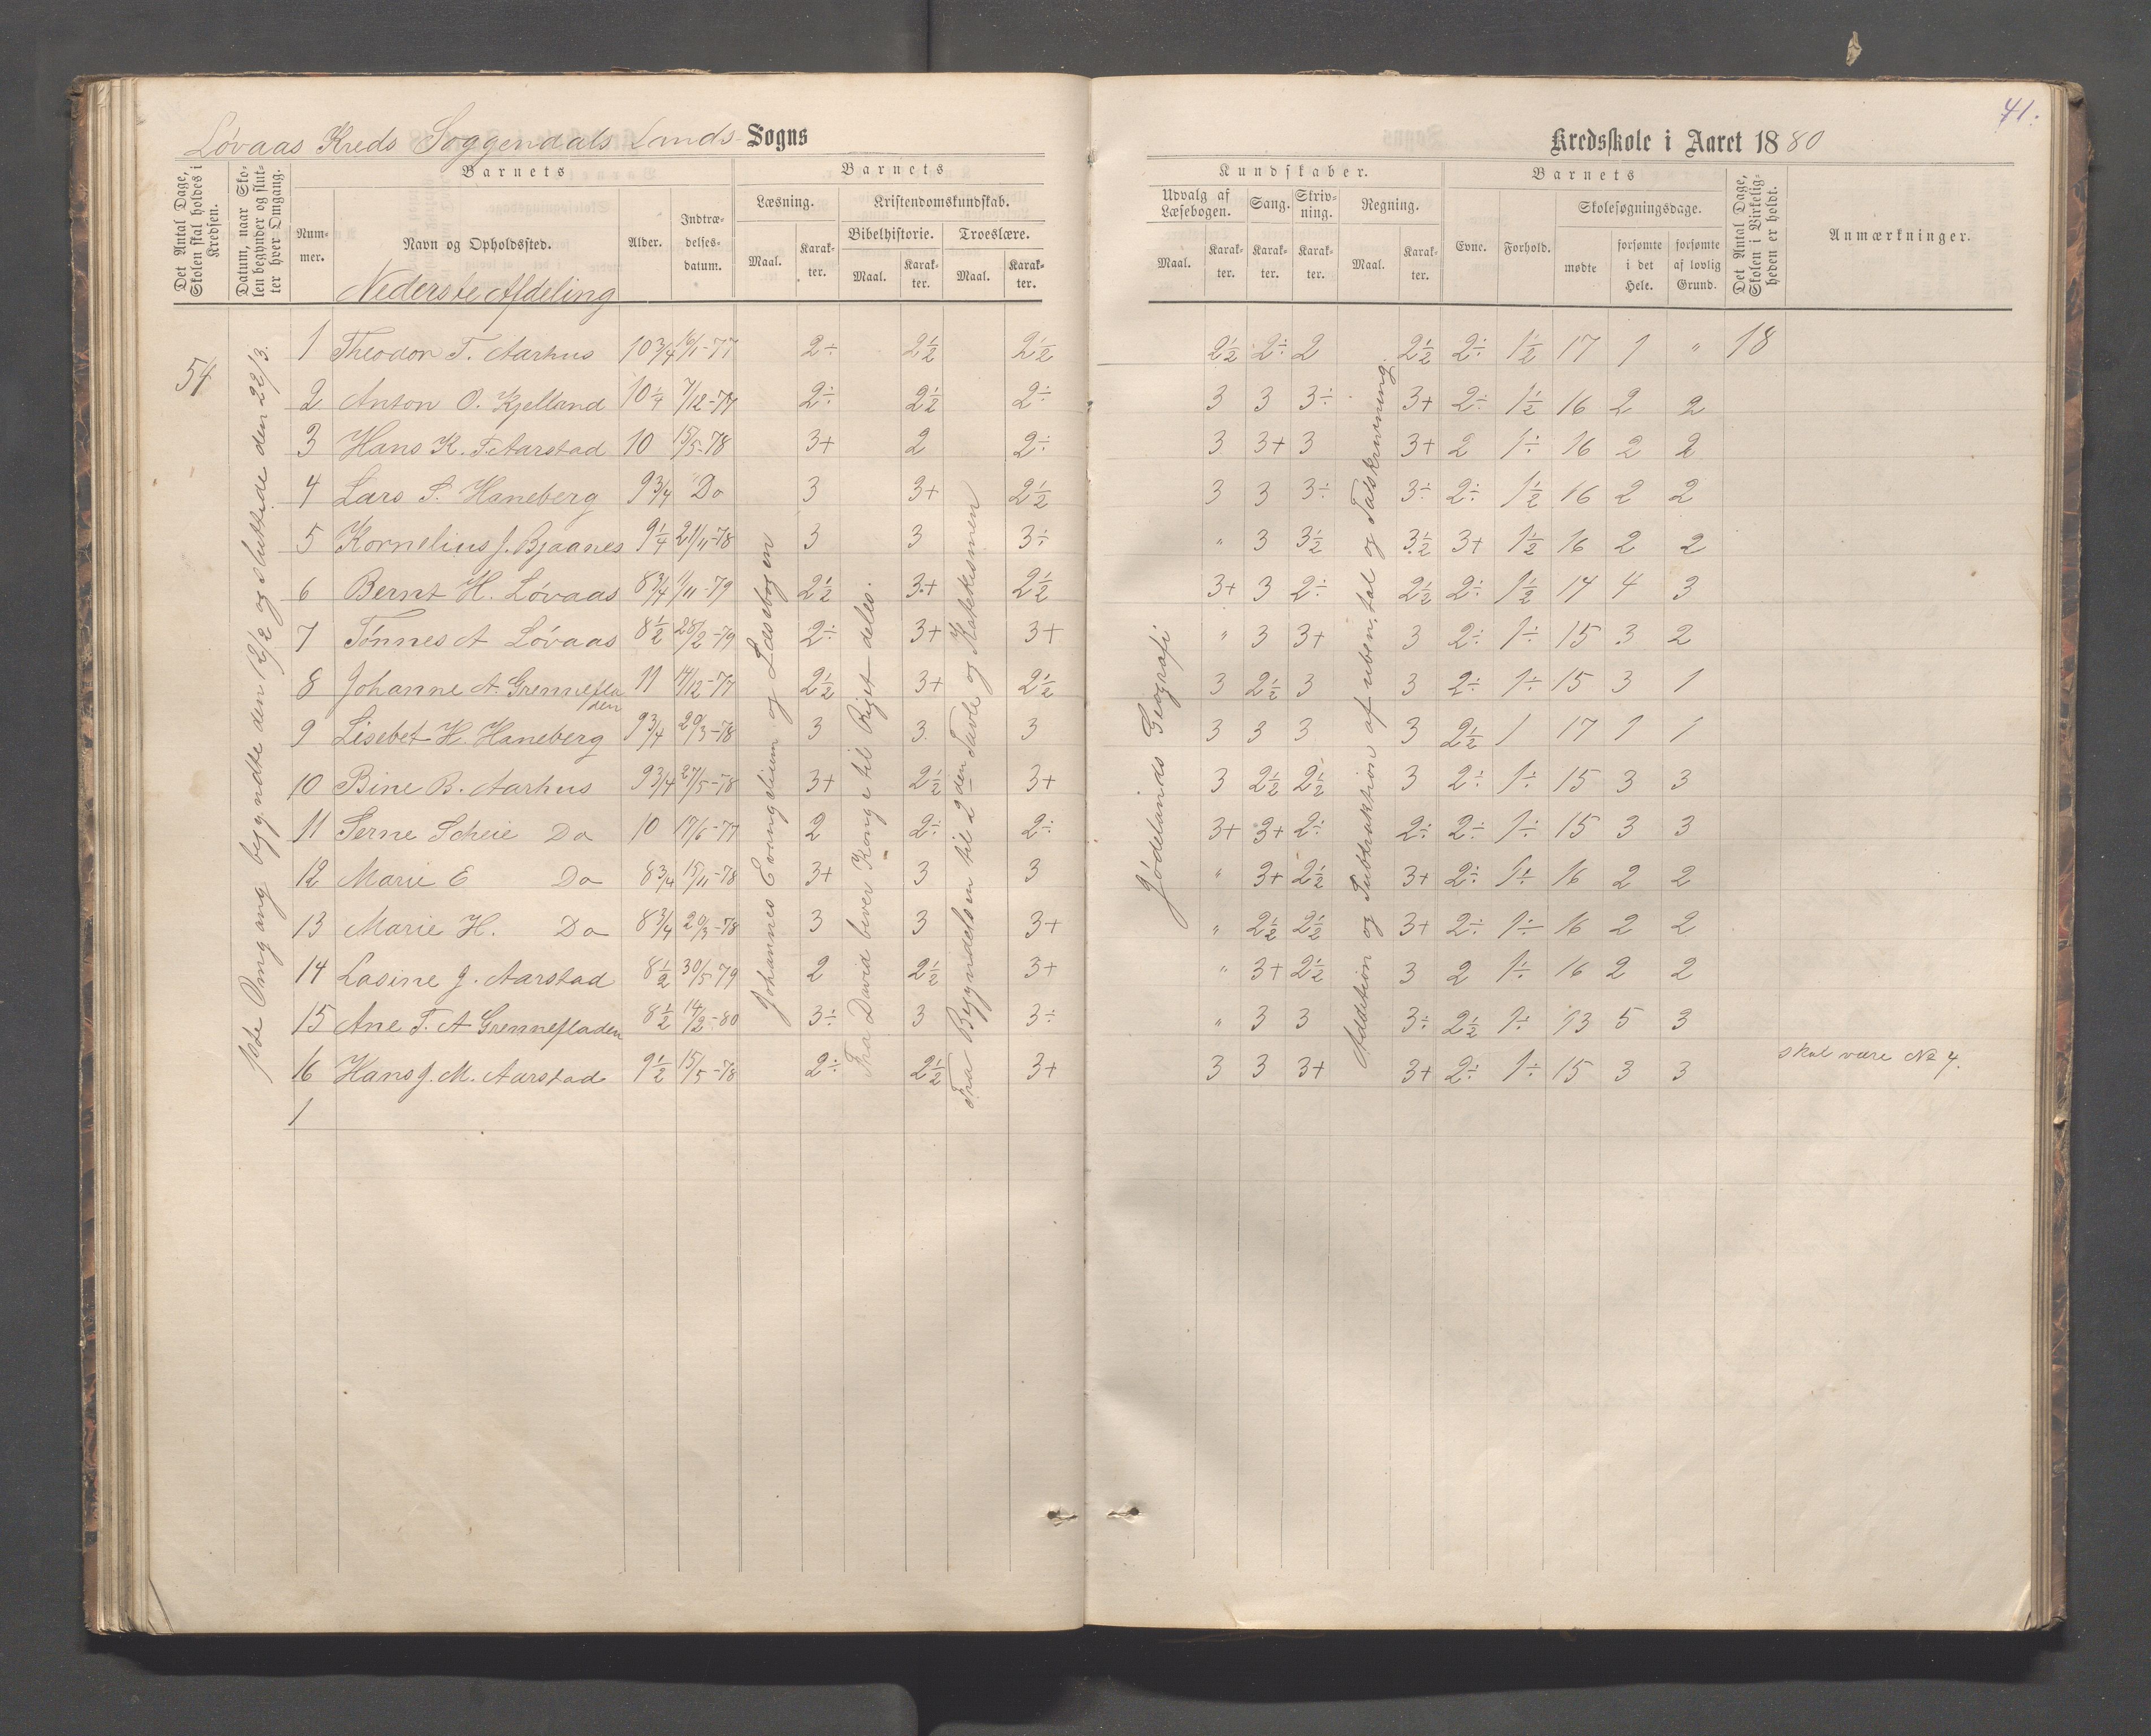 41.
Løvaas Kreds Soggendals Lands Sogns
Kredsskole i Aaret 1880
Det Antal Dage, Skolen skal holdes i Kredsen.
Datum, naar Skolen begynder og slutter hver Omgang.
Barnets
Nummer.
Navn og Opholdssted.
Nederste Afdeling
Alder.
Indtrædelsesdatum.
Barnets
Læsning.
Maal.
Karakter.
Kristendomskundskab.
Bibelhistorie.
Maal.
Karakter.
Troeslære.
Maal.
Karakter.
Kundskaber.
Udvalg af Læsebogen.
Maal.
Karakter.
Sang.
Karakter.
Skrivning.
Karakter.
Regning.
Maal.
Karakter.
Barnets
Evne.
Forhold.
Skolesøgningsdage.
mødte
forsømte i det Hele.
forsømte af lovlig Grund.
Det Antal Dage, Skolen i Virkeligheden er holdt.
Anmærkninger.
54
1ste Omgang begyndte den 12/2 og sluttede den 22/3.
Johannes Evangelium og Læsebogen
Fra David bever Konge til Riget deles.
Fra Begyndelsen til 2den Tavle og Katekismen
Jødelands Geografi
Addition og Subtraktion af uben. tal og Talskrivning.
1 Theodor T. Aarhus 10 3/4 16/1-77 2÷ 2½ 2½ 2½ 2÷ 2 2½ 2÷ 1½ 17 1 " 18
2 Anton O. Kjelland 10¼ 7/12-77 2÷ 2½ 2÷ 3 3 3÷ 3+ 2÷ 1½ 16 2 2
3 Hans K. T. Aarstad 10 15/5-78 3+ 2 2÷ 3 3+ 3 3+ 2 1÷ 16 2 2
4 Lars S. Haneberg 9¾ Do 3 3+ 2½ 3 3 3÷ 3÷ 2÷ 1½ 16 2 2
5 Kornelius J. Bjaanes 9¼ 21/11-78 3 3 3÷ " 3 3½ 3½ 3+ 1½ 16 2 2
6 Bernt H. Løvaas 8¾ 1/11-79 2½ 3+ 2½ 3+ 3 2÷ 2½ 2÷ 1½ 14 4 3
7 Tønnes A Løvaas 8½ 28/2-79 2÷ 3+ 3+ " 3 3+ 3 2÷ 1÷ 15 3 2
8 Johanne A. Grennefladen 11 14/12-77 2½ 3+ 2½ 3 2½ 3 3 2÷ 1÷ 15 3 1
9 Lisebet H. Haneberg 9¾ 20/3-78 3 3. 3 3 3 3 3 2½ 1 17 1 1
10 Bine B. Aarhus 9¾ 27/5-78 3+ 2½ 3+ 3 2½ 2½ 3 2÷ 1÷ 15 3 3
11 Serne Scheie Do 10 17/6-77 2 2÷ 2÷ 3+ 3+ 2÷ 2÷ 2÷ 1÷ 15 3 3
12 Marie E Do 8¾ 15/11-78 3+ 3 3 " 3+ 2½ 3+ 2÷ 1÷ 16 2 2
13 Marie H. Do 8¾ 20/3-78 3 3 3+ " 2½ 2½ 3+ 2÷ 1÷ 16 2 2
14 Lasine J. Aarstad 8½ 30/5-79 2 2½ 3+ " 3+ 2½ 3 2 1÷ 16 2 2
15 Ane T. A Grennefladen 8½ 14/2-80 3÷ 3 3÷ " 3 3 3÷ 2½ 1÷ 13 5 3
16 Hans J. M. Aarstad 9½ 15/5-78 2÷ 2½ 3+ 3 3 3+ 3+ 2÷ 1÷ 15 3 3 skal være No 4.
1